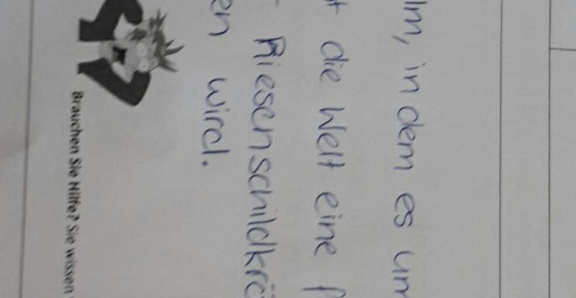 lm, in dem es um
t die Welt eine
Riesenschildkrö
en wird.
Brauchen Sie Hilfe? Sie wissen